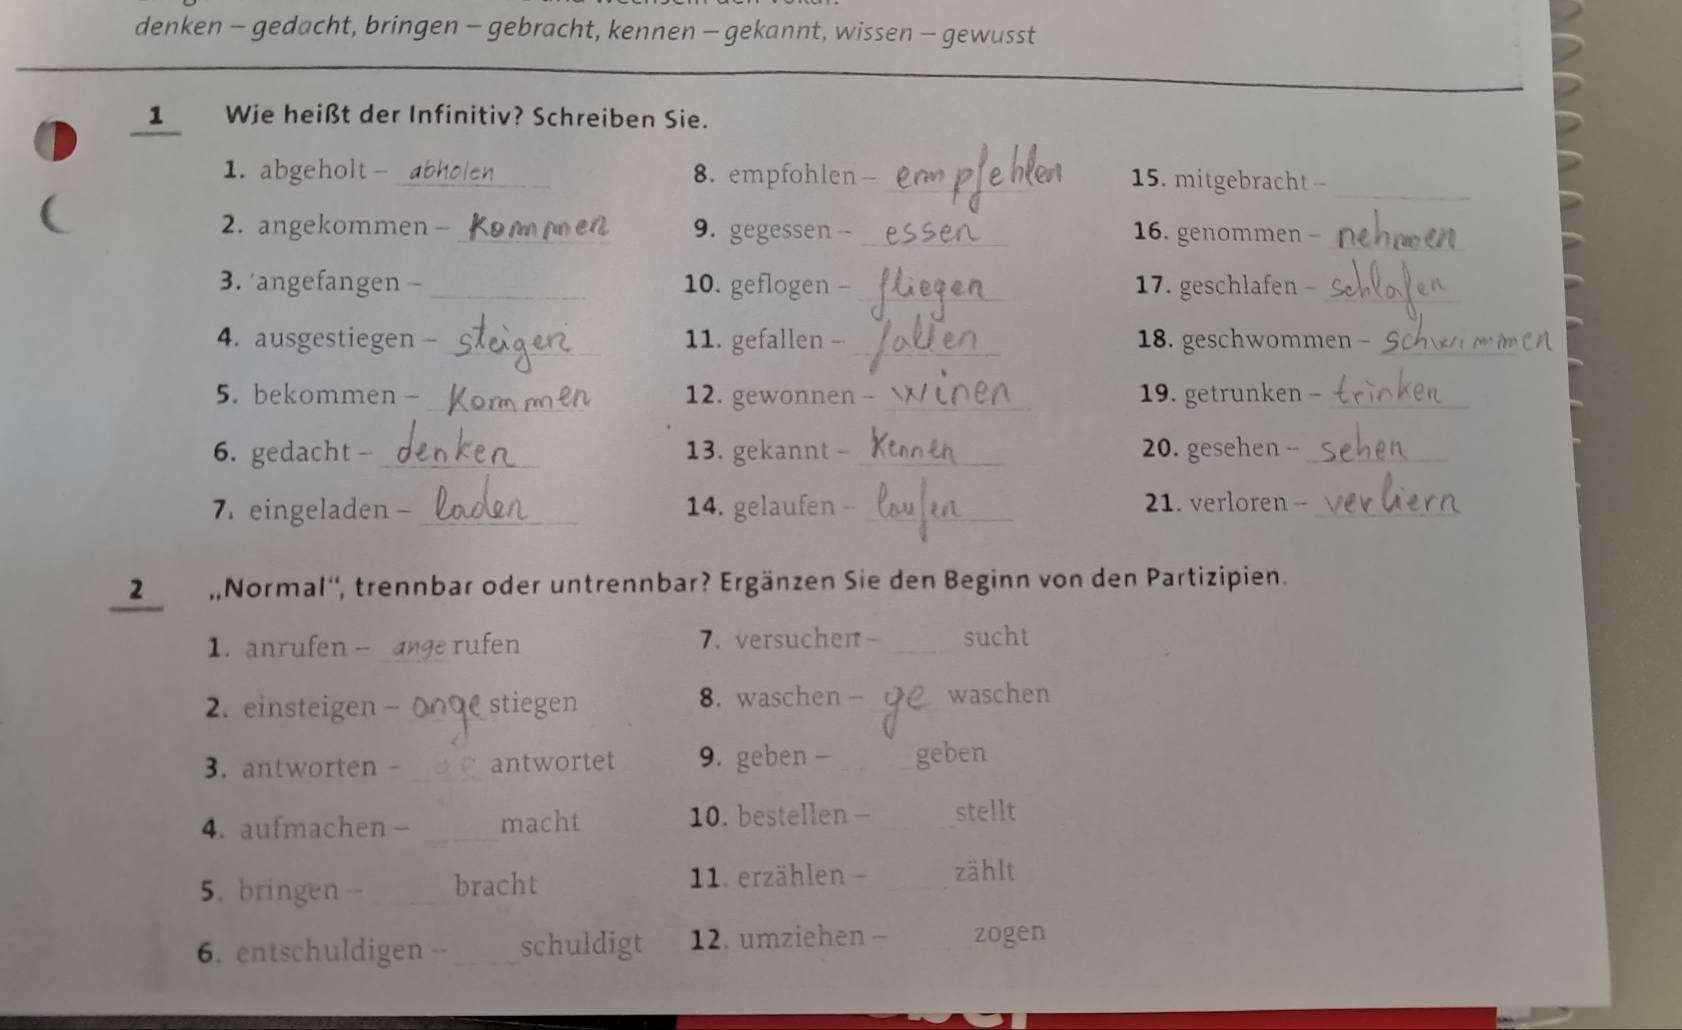 denken – gedacht, bringen – gebracht, kennen – gekannt, wissen – gewusst
1 Wie heißt der Infinitiv? Schreiben Sie.
1. abgeholt – abholen
2. angekommen – kommen
3. angefangen –
4. ausgestiegen – steigen
5. bekommen – kommen
6. gedacht – denken
7. eingeladen – laden
8. empfohlen – empfehlen
9. gegessen – essen
10. geflogen – fliegen
11. gefallen – fallen
12. gewonnen – winen
13. gekannt – kennen
14. gelaufen – laufen
15. mitgebracht –
16. genommen – nehmen
17. geschlafen – schlafen
18. geschwommen – schwimmen
19. getrunken – trinken
20. gesehen – sehen
21. verloren – verliern
2 „Normal“, trennbar oder untrennbar? Ergänzen Sie den Beginn von den Partizipien.
1. anrufen – angerufen
2. einsteigen – ange stiegen
3. antworten – antwortet
4. aufmachen – macht
5. bringen – bracht
6. entschuldigen – schuldigt
7. versuchen – sucht
8. waschen – ge waschen
9. geben – geben
10. bestellen – stellt
11. erzählen – zählt
12. umziehen – zogen